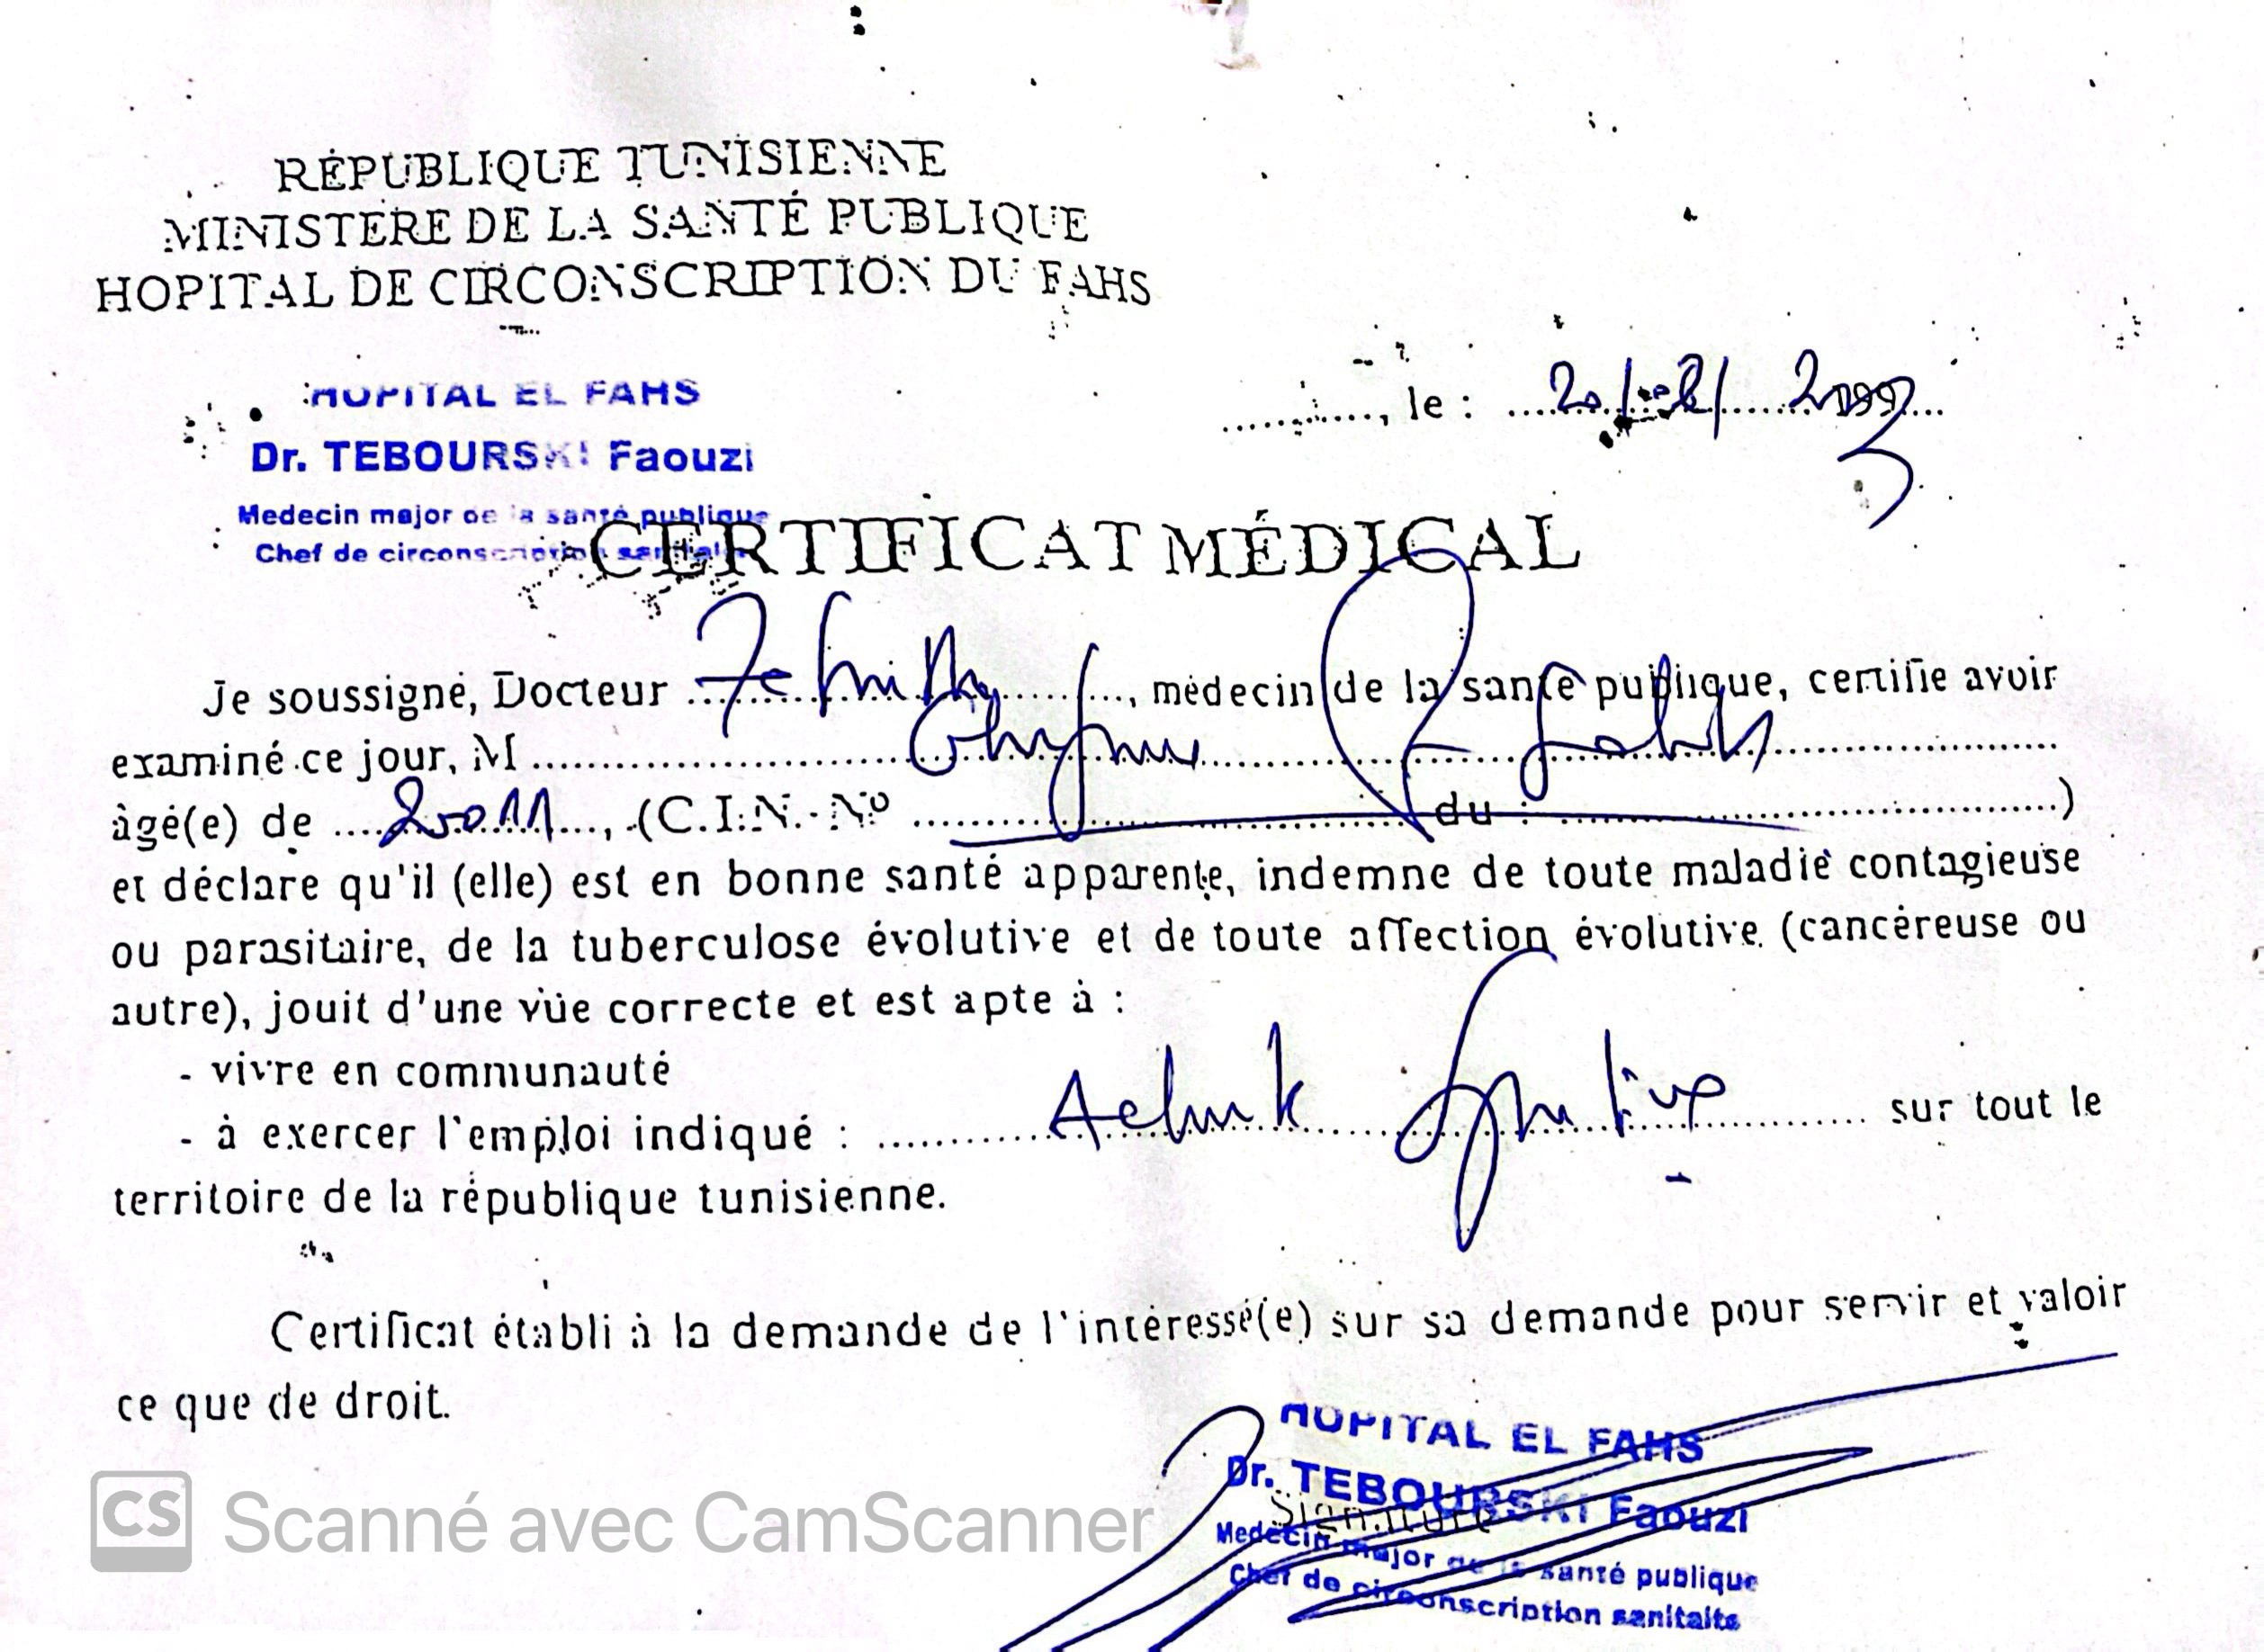 RÉPUBLIQUE TUNISIENNE
MINISTERE DE LA SANTÉ PUBLIQUE
HOPITAL DE CIRCONSCRIPTION DU FAHS
HOPITAL EL FAHS
Dr. TEBOURSKI Faouzi
Medecin major de la santé publique
Chef de circonscription sanitaire
........., le :
CERTIFICAT MÉDICAL
Je soussigné, Docteur ........, médecin de la santé publique, certifie avoir
examiné ce jour, M ........
âgé(e) de .... 2011 ...., (C.I.N. Nº ........ du : ........)
et déclare qu'il (elle) est en bonne santé apparente, indemne de toute maladie contagieuse
ou parasitaire, de la tuberculose évolutive et de toute affection évolutive (cancéreuse ou
autre), jouit d'une vüe correcte et est apte à :
- vivre en communauté
- à exercer l'emploi indiqué : ........ sur tout le
territoire de la république tunisienne.
Certificat établi à la demande de l'intéressé(e) sur sa demande pour servir et valoir
ce que de droit.
HOPITAL EL FAHS
Dr. TEBOURSKI Faouzi
Signature
Medecin major de la santé publique
Chef de circonscription sanitaite
CS Scanné avec CamScanner